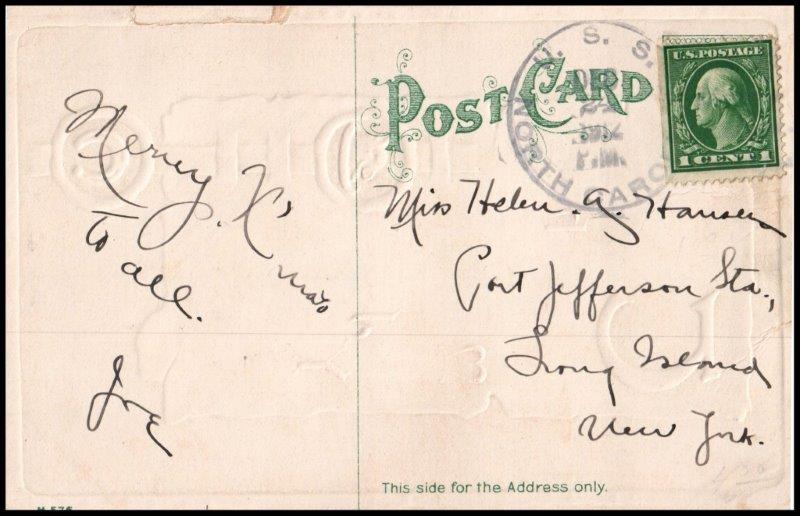 Merry X'mas
To all.
Joe
POST CARD
U.S.S.
NORTH CARO
DEC
P.M.
U.S. POSTAGE
1 CENT 1
Miss Helen. A. Hansen
Port Jefferson Sta.,
Long Island
New York.
This side for the Address only.